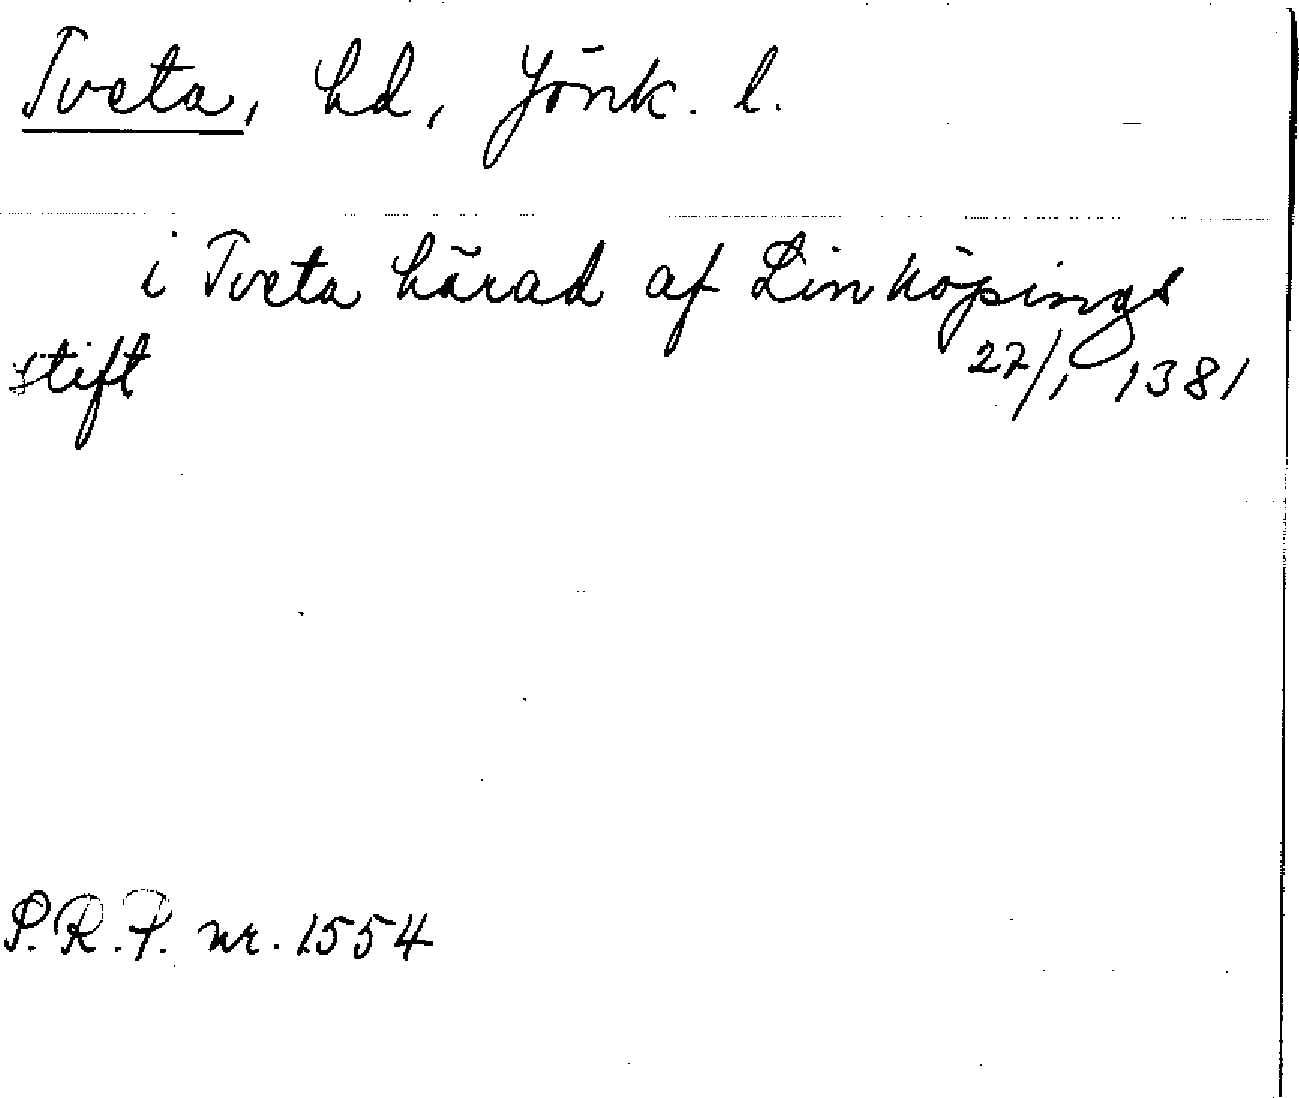 Tveta, hd, Jönk. l.
i Tveta härad af Linköpings
stift 27/1 1381
P.R.P. nr. 1554